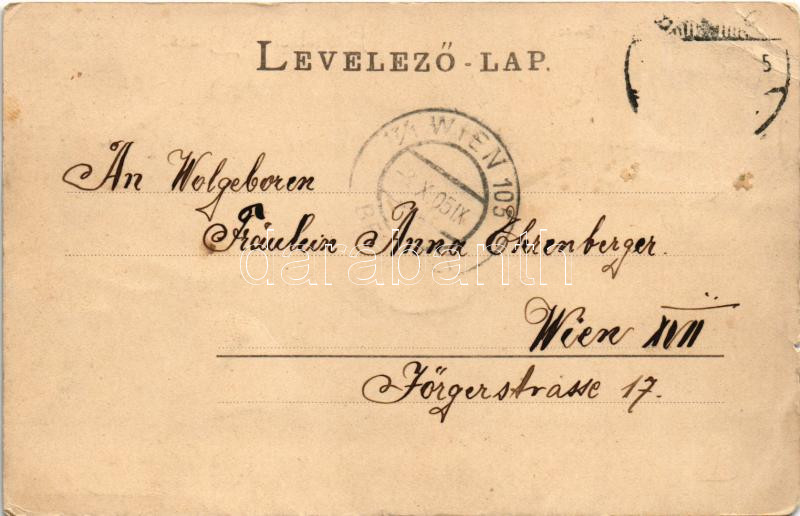 LEVELEZŐ-LAP.
5
17/1 WIEN 103
-3 X 05 IX
B
An Wolgeboren
Fräulein Anna Ehrenberger.
Wien XVII
Jörgerstrasse 17.
darabanth